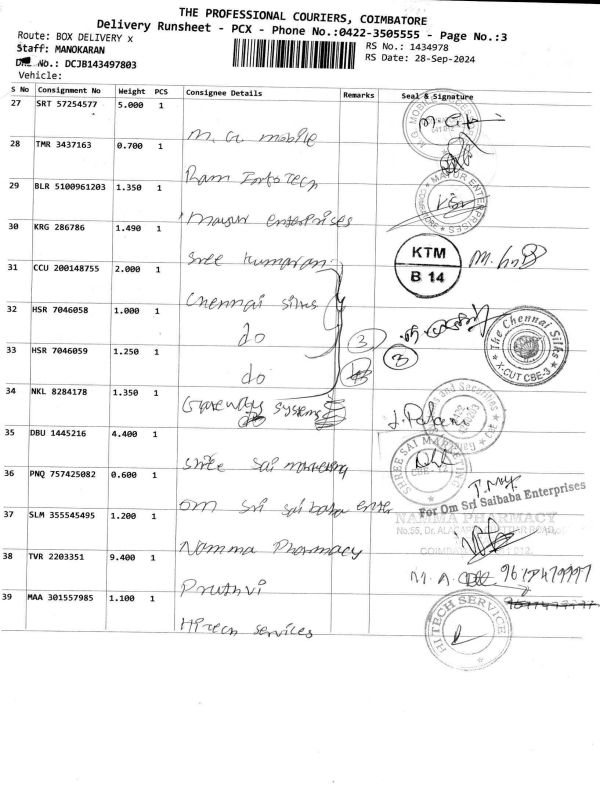 THE PROFESSIONAL COURIERS, COIMBATORE
Delivery Runsheet - PCX - Phone No.:0422-3505555 - Page No.:3
Route: BOX DELIVERY x
RS No.: 1434978
Staff: MANOKARAN
RS Date: 28-Sep-2024
No.: DCJB143497803
Vehicle:
S No Consignment No Weight PCS Consignee Details Remarks Seal & Signature
27 SRT 57254577 5.000 1
M. G. mobile
28 TMR 3437163 0.700 1
Ram Infotech
29 BLR 5100961203 1.350 1
Mayur enterprises
MAYUR ENTERPRISES
30 KRG 286786 1.490 1
Sree Kumaran
KTM
B 14
31 CCU 200148755 2.000 1
Chennai silks
32 HSR 7046058 1.000 1
do
3
The Chennai Silks
X-CUT CBE-3
33 HSR 7046059 1.250 1
do
3
34 NKL 8284178 1.350 1
Gateway systems
35 DBU 1445216 4.400 1
Shree Sai marketing
SHREE SAI MARKETING
36 PNQ 757425082 0.600 1
om Sri Saibaba enter
For Om Sri Saibaba Enterprises
37 SLM 355545495 1.200 1
Namma Pharmacy
NAMMA PHARMACY
38 TVR 2203351 9.400 1
Pruthvi
39 MAA 301557985 1.100 1
Hitech Services
HI TECH SERVICE